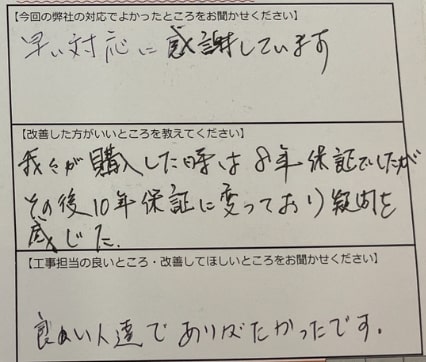 【今回の弊社の対応でよかったところをお聞かせください】
早い対応に感謝しています
【改善した方がいいところを教えてください】
我々が購入した時は8年保証でしたが
その後10年保証に変っており疑問を
感じた.
【工事担当の良いところ・改善してほしいところをお聞かせください】
良い人達でありがたかったです.